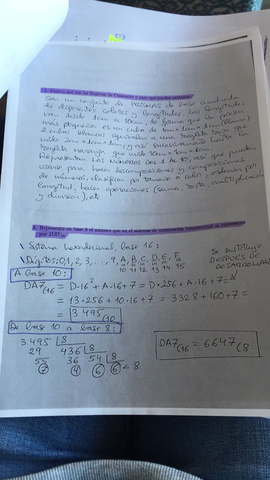 3. Explica qué son las Regletas de Cuisenaire y para qué pueden utilizarse.
Son un conjunto de barras de base cuadrada
de diferentes colores y longitudes. Las longitudes
van desde 1cm a 10cm, de forma que la pieza
más pequeña es un cubo de 1cm×1cm×1cm (blanco)
2 cubos blancos equivalen a una regleta roja que
mide 2cm×1cm×1cm, y así sucesivamente hasta la
regleta naranja que mide 10cm×1cm×1cm.
Representan los números del 1 al 10, así que pueden
usarse para hacer descomposiciones y composiciones
de números, clasificar por tamaño o color, ordenar por
longitud, hacer operaciones (suma, resta, multiplicación
y división), etc
4. Representa en base 8 el número que en el sistema de numeración hexadecimal se representa
por DA7(16
\ Sistema hexadecimal, base 16:
\ Dígitos: 0, 1, 2, 3, ..., 9, A, B, C, D, E, F
10 11 12 13 14 15
Se sustituye
DESPUÉS DE
A base 10:
DA7(16 = D·16² + A·16 + 7 = D·256 + A·16 + 7 =
= 13·256 + 10·16 + 7 = 3328 + 160 + 7 =
= 3495(10
De base 10 a base 8:
3495 8
29 436 8
55 36 54 8
7 4 6 6 < 8
DA7(16 = 6647(8